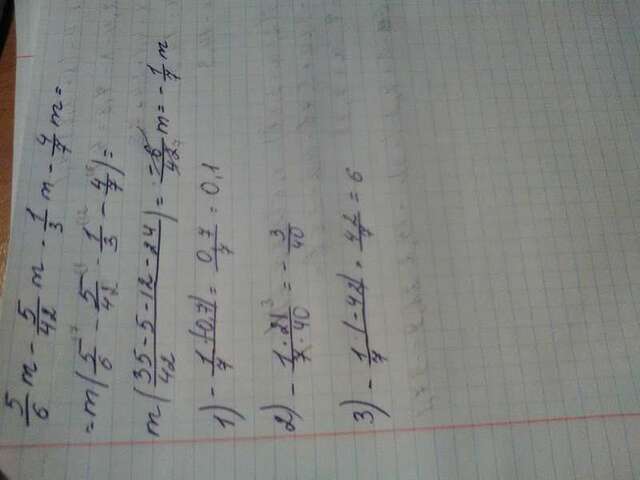 5/6 m - 5/42 m - 1/3 m - 4/7 m =
= m(5/6 - 5/42 - 1/3 - 4/7) =
m(35-5-12-24 / 42) = -6/42 m = - 1/7 m
1) - 1/7 · (-0,7) = 0,7/7 = 0,1
2) - 1·21/7·40 = - 3/40
3) - 1/7 · (-42) = 42/7 = 6